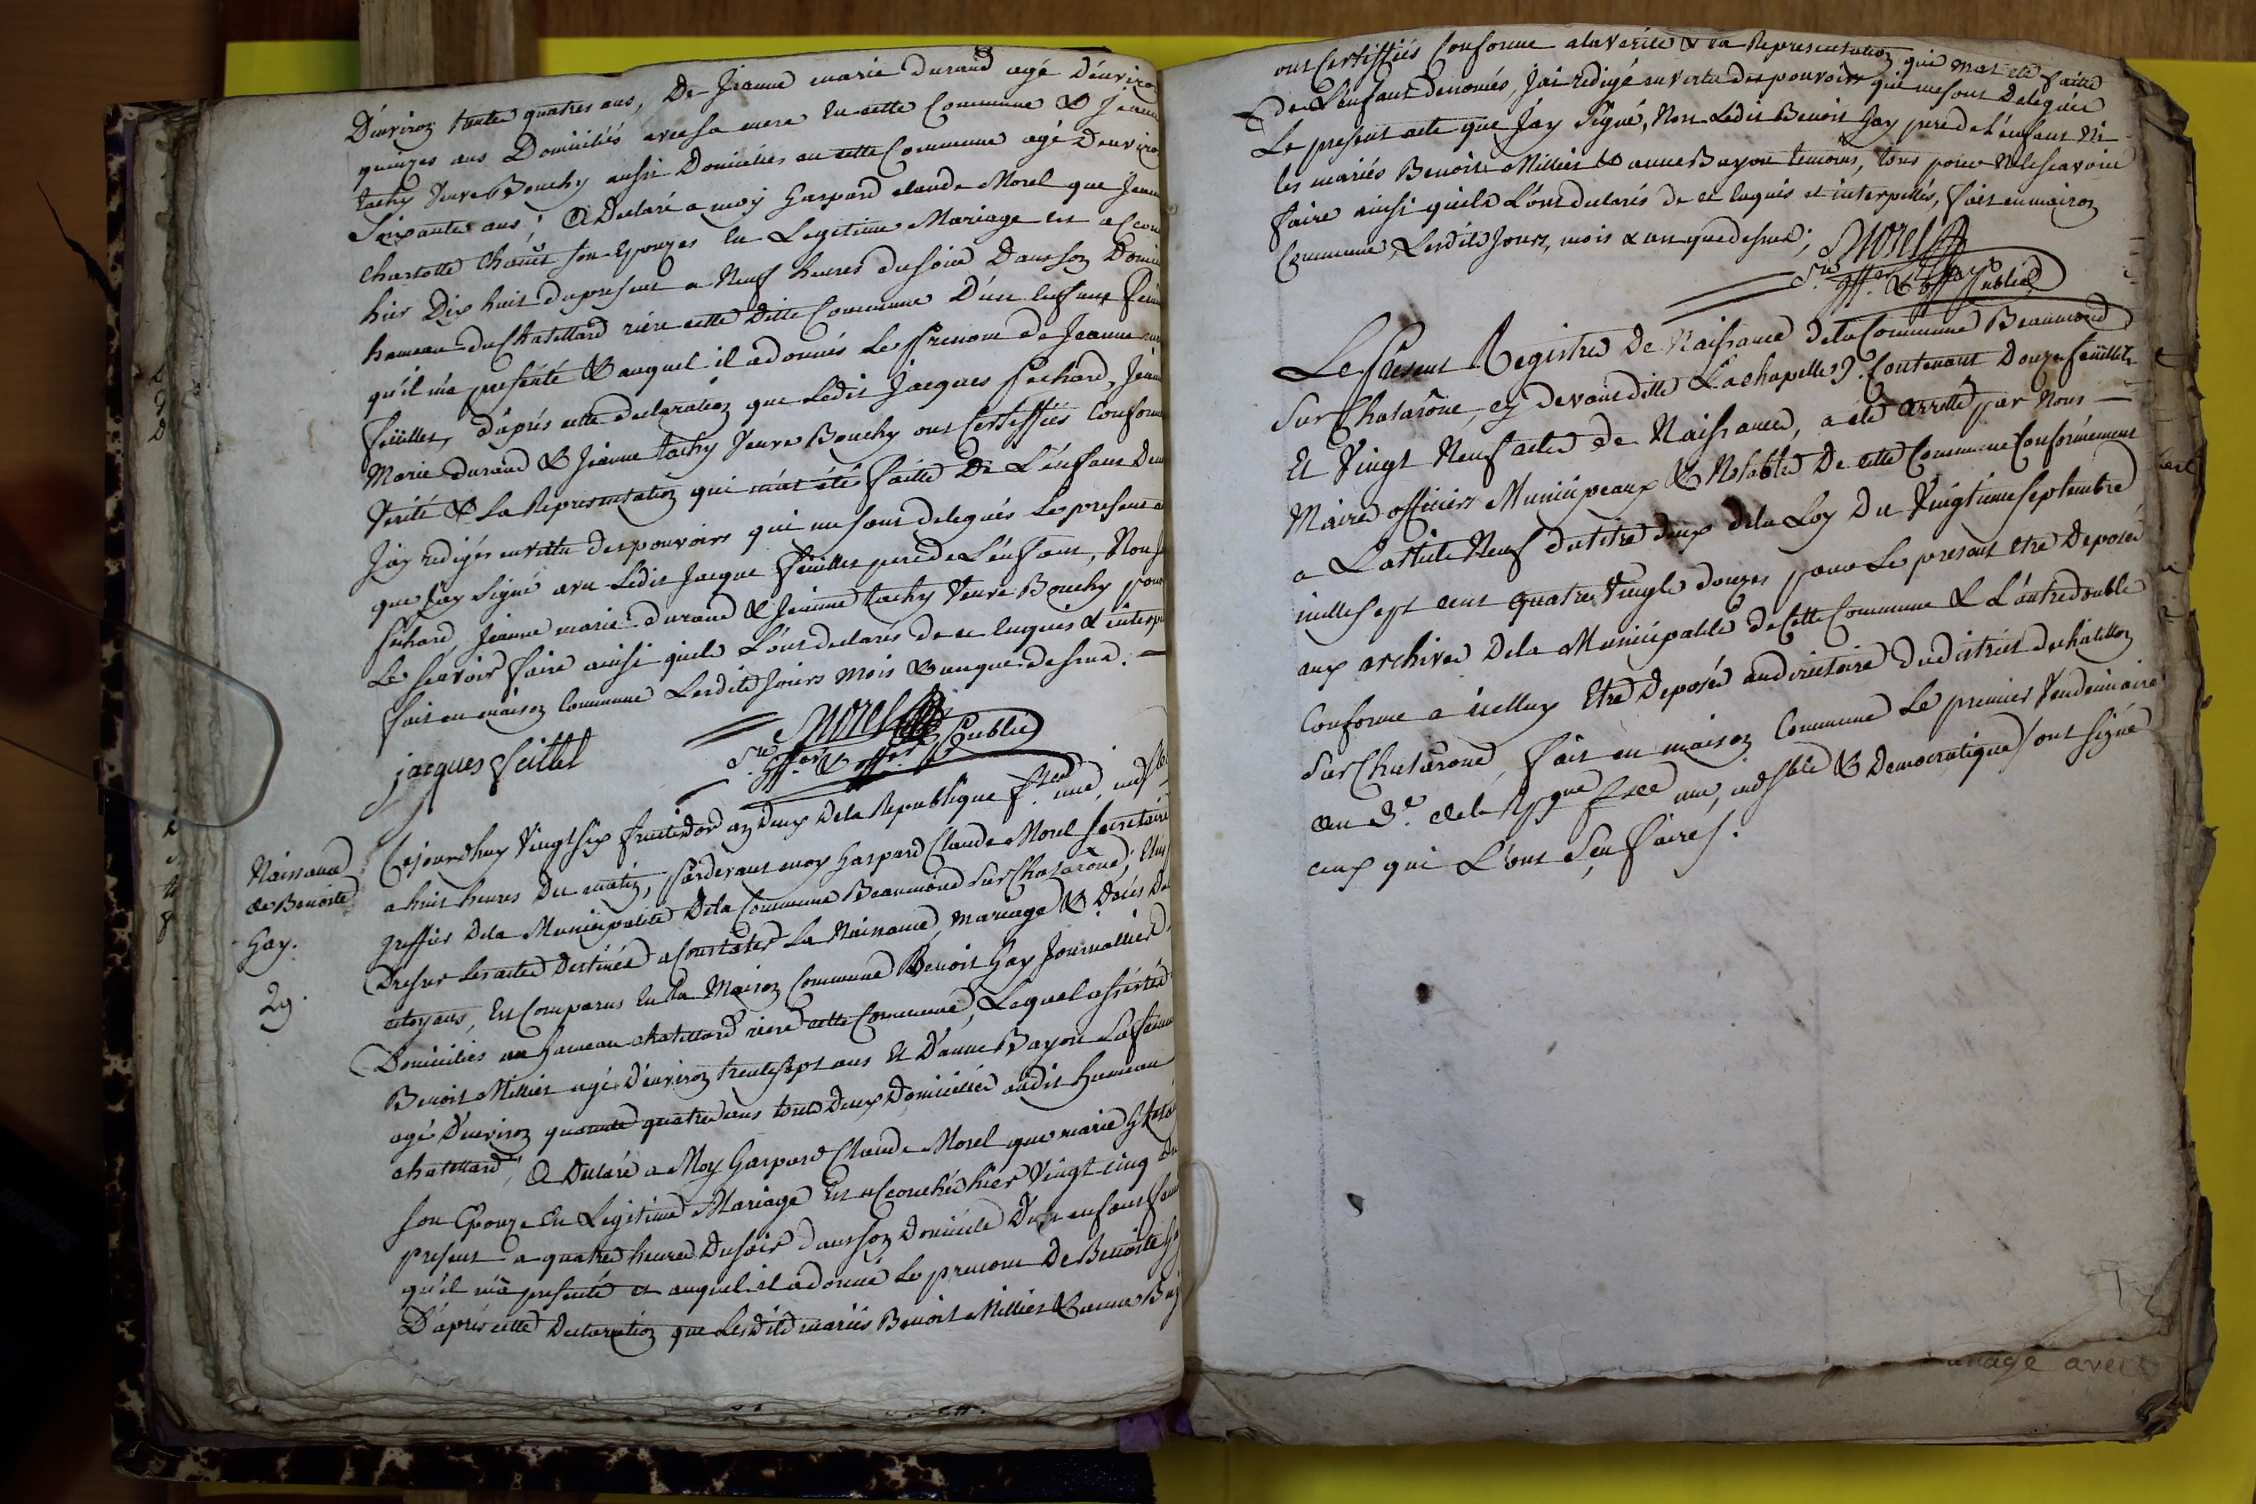 D'environ trente quatres ans, De Jeanne marie durand agé d'enviro
quinzes ans Domiciliés avec sa mere en cette Commune & Jeanne
tachy Veuve Bouchy aussi Domiciliés en cette Commune agé d'enviro
Soixante ans; A Déclaré a moy Gaspard claude Morel que Jeanne
Charlotte Chanet son Epouzes En Legitime Mariage est accou
hier Dix huit du present a Neuf heures du soir Dans son Domi
hameau du Chatellard riere cette Ditte Commune D'un Enfant fem
qu'il m'a presenté & auquel il a donnés Le Prenom de Jeanne
feüillet, d'après cette declaration que Ledit Jacques Sechard, Jeanne
Marie durand & Jeanne tachy Veuve Bouchy ont Certiffiés Conforme
Verité & La Representation qui m'at été faitte De L'enfant De
J'ay redigés en vertu des pouvoirs qui me sont delegués Le present a
que J'ay Signé avec Ledit Jacque feuillet pere de L'enfant, Non
Sechard, Jeanne marie durand & Jeanne tachy Veuve Bouchy pour
Le scavoir faire ainsi quils L'ont declarés de ce Enquis & interp
fait en maison Commune Lesdits Jours mois & an que dessus. —
Morel
Sre. Gffer. & offer. Public
jacques feillet
Naissance
de Benoite
Gay.
29.
Cejourdhuy Vingt six fructidor an deux De la Republique f.cee une, indsble
a huit heures Du matin, Pardevant moy Gaspard Claude Morel Secretaire
greffier De la Municipalité De la Commune Beaumond sur Chalarône; Elu
Dresser les actes Destinés a Constater La Naissance, mariage & Décès De
citoyens, Est Comparus En la Maison Commune Benoit Gay Journallier
Domiciliés au hameau chatellard riere cette Commune, Lequel assistés
Benoit Millier agé d'environ trente sept ans Et D'anne Bayon La femme
agé D'environ quarante quatre ans tous Deux Domiciliés audit hameau
chatellard; A Declaré a Moy Gaspard Claude Morel que marie
son Epouze En Legitime Mariage Est accouchée hier Vingt cinq du
present a quatre heures Du soir dans son Domicile D'un enfant fem
qu'il m'a presenté et auquel il a donné Le prenom De Benoite
D'après cette Declaration que Lesdits mariés Benoit Millier & anne Bay
ont Certiffiés Conforme a la Verité & La Representation qui mat eté faitte
de L'enfant denomés, J'ai redigé en vertu des pouvoirs qui me sont Delegués
Le present acte que J'ay Signé, Non Ledit Benoit Gay pere de L'enfant Ni
les mariés Benoit Millier & anne Bayon temoins, tous pour Ne le scavoir
faire ainsi quils L'ont declarés de ce Enquis et interpellés, fait en maison
Commune Lesdits Jours, mois & an que dessus;
Morel
Sre. Gffer. & offer. Public
Le Present Registre De Naissance De la Commune Beaumond
Sur Chalarône, cy devant ditte Lachapelle, Contenant Douze feuillets
Et Vingt Neuf actes de Naissance, a eté arretté par Nous —
Maire officiers Municipeaux & Notables De cette Commune Conformement
a L'article Neuf du titre deux de la Loy Du Vingtieme Septembre
mille sept cent quatre Vingts douzes pour Le present être Deposé
aux archives De la Municipalité de Cette Commune & L'autre double
Conforme a icelluy Etre Deposé au directoire du district de chatillon
Sur Chalarône, fait en maison Commune Le premier Vendemiaire
an 3.e de la Rpque fcee une, indsble & Democratique, ont signé
ceux qui L'ont sçu faire.